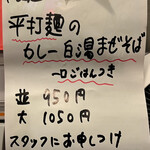 平打麺の
カレー白湯まぜそば
一口ごはんつき
並 950円
大 1050円
スタッフにお申しつけ